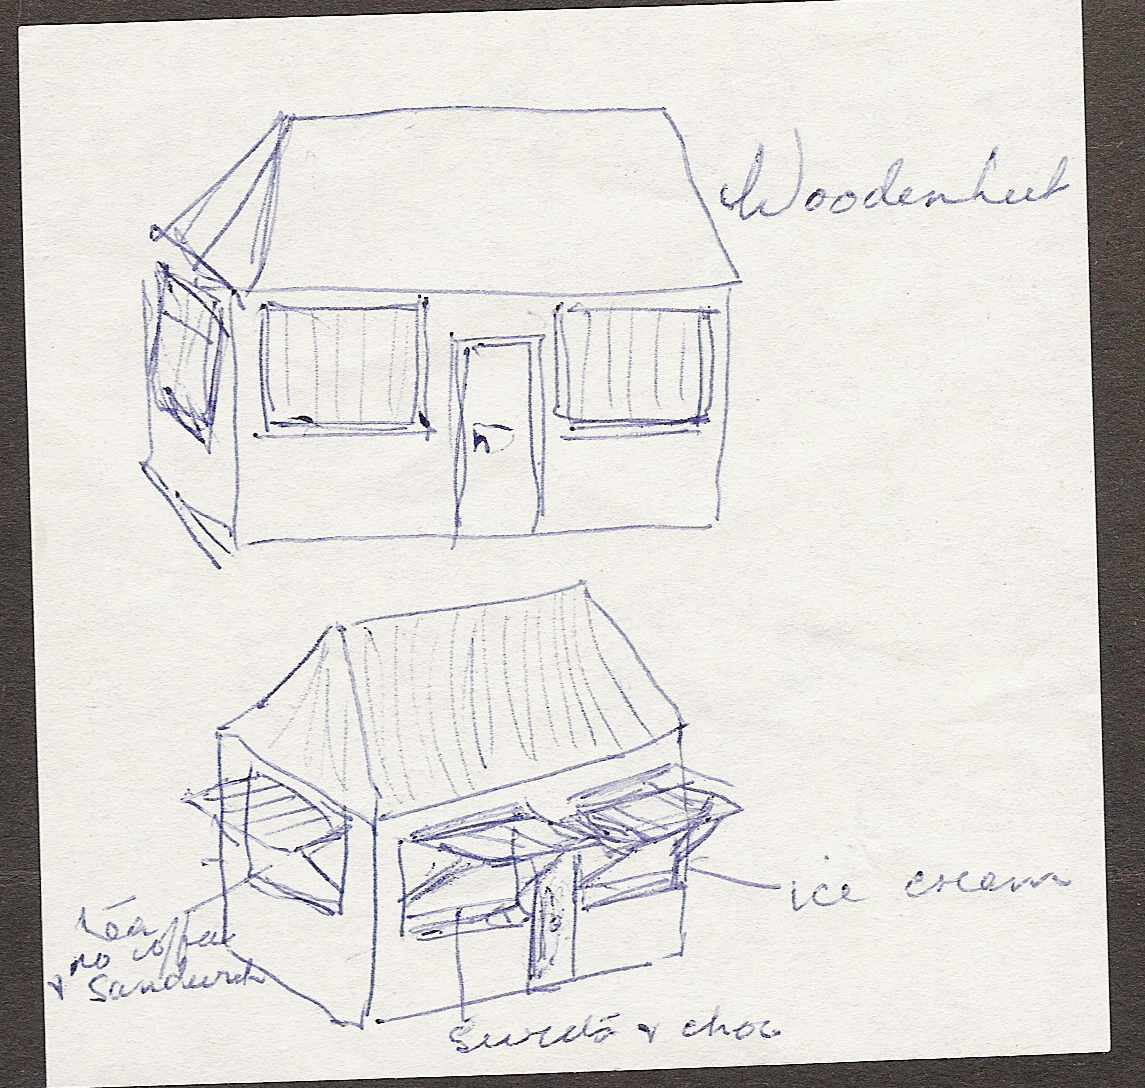 Woodenhut
ice cream
Tea
no coffee
& Sandwich
Sweets & choc